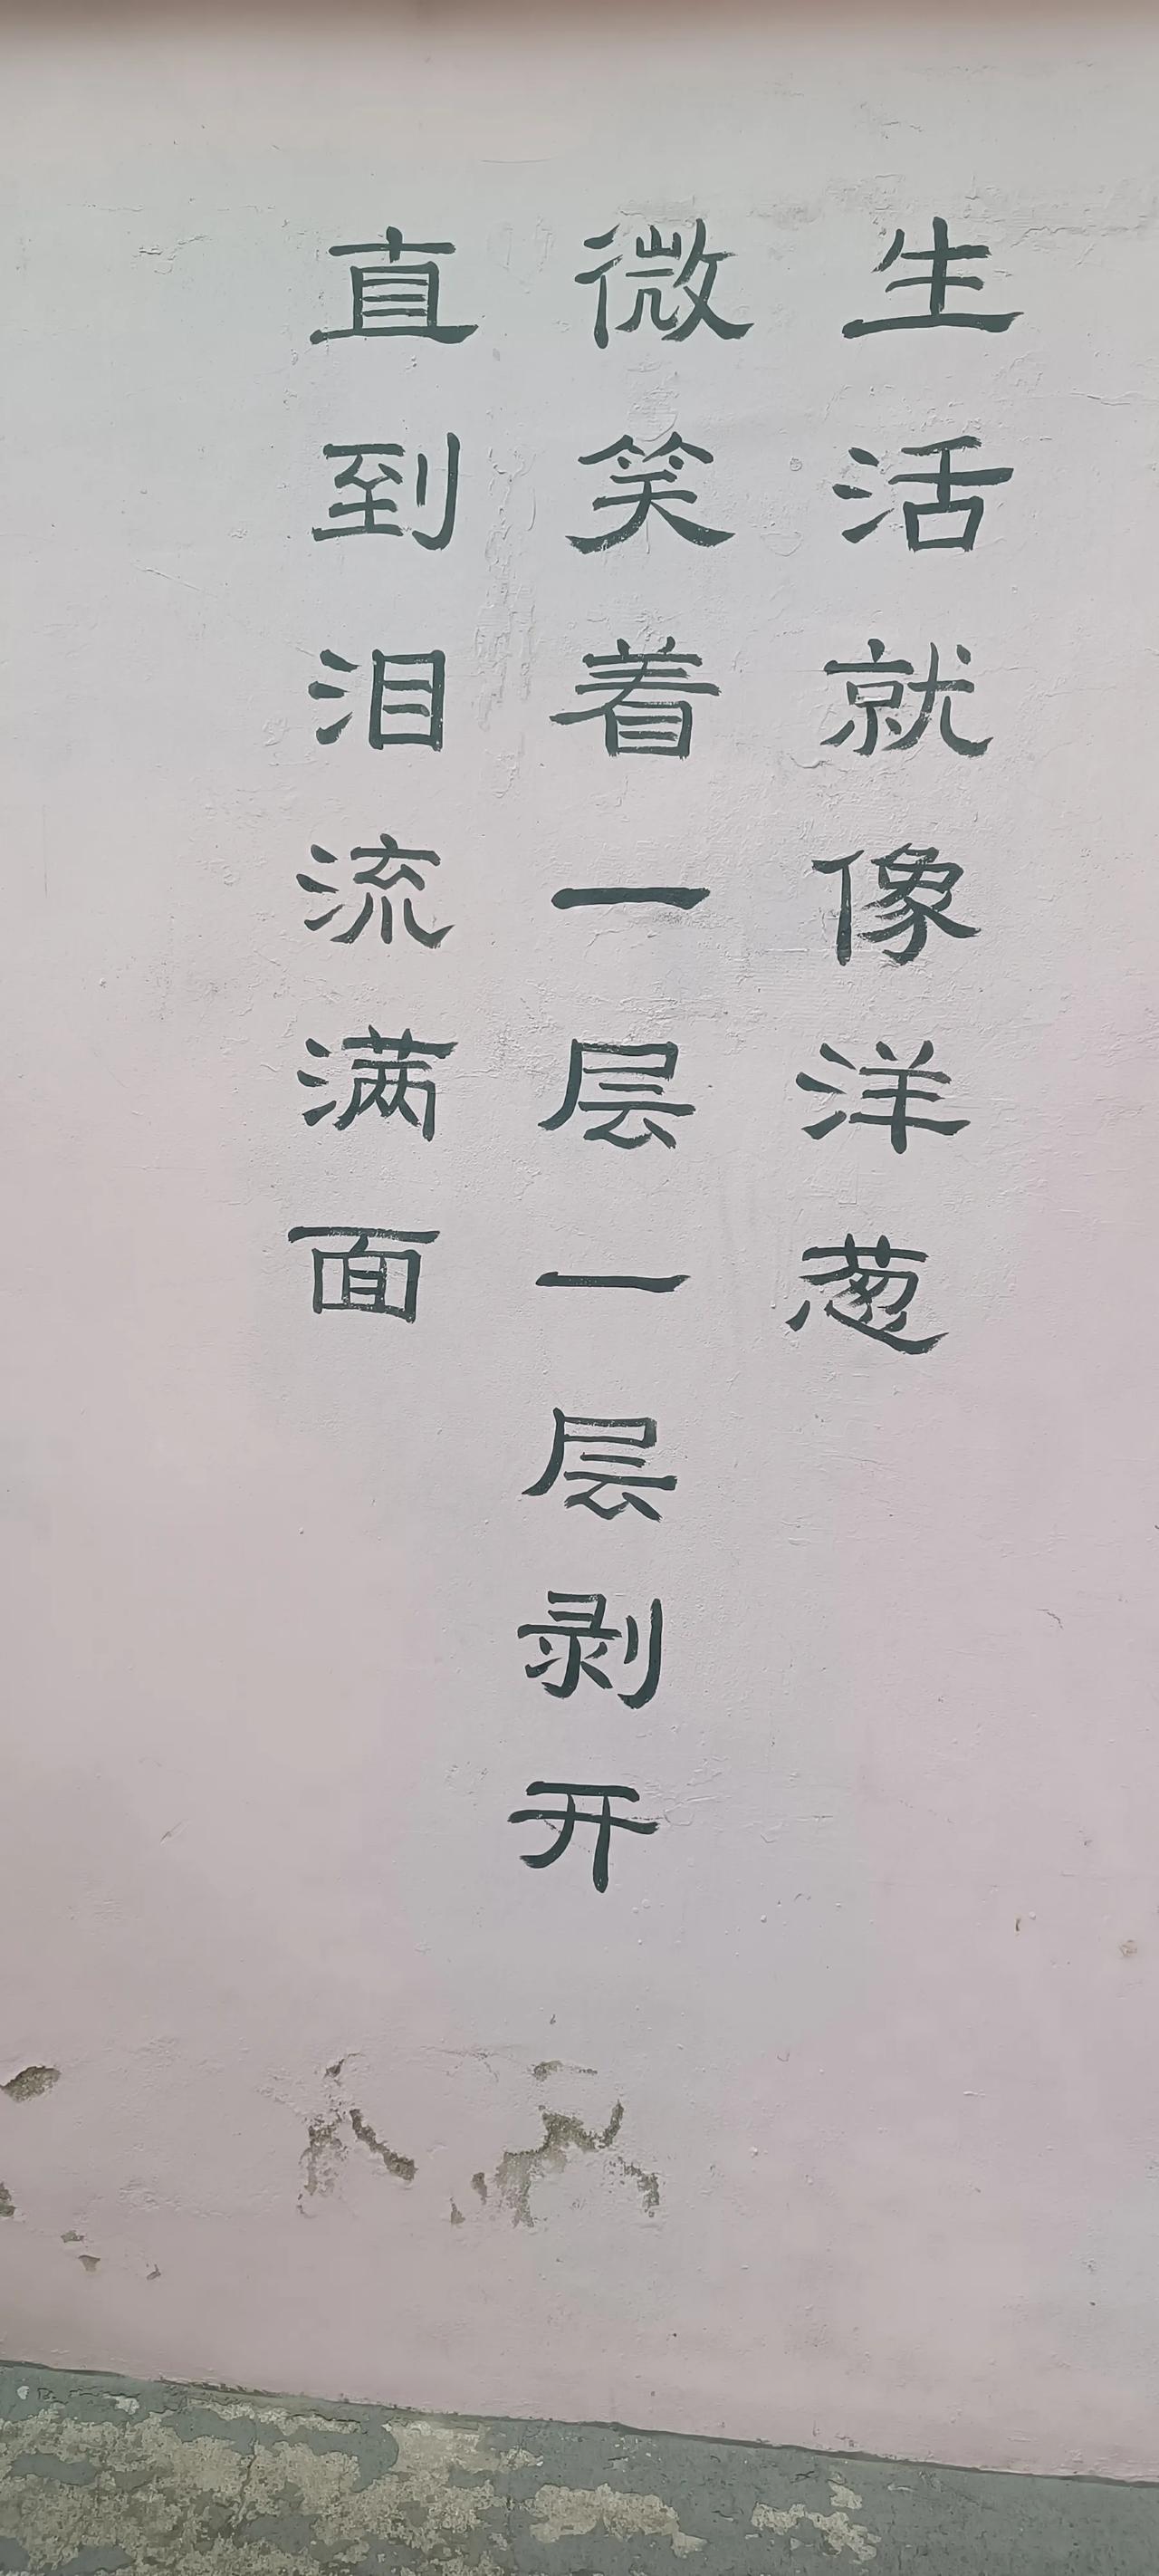 生活就像洋葱
微笑着一层一层剥开
直到泪流满面